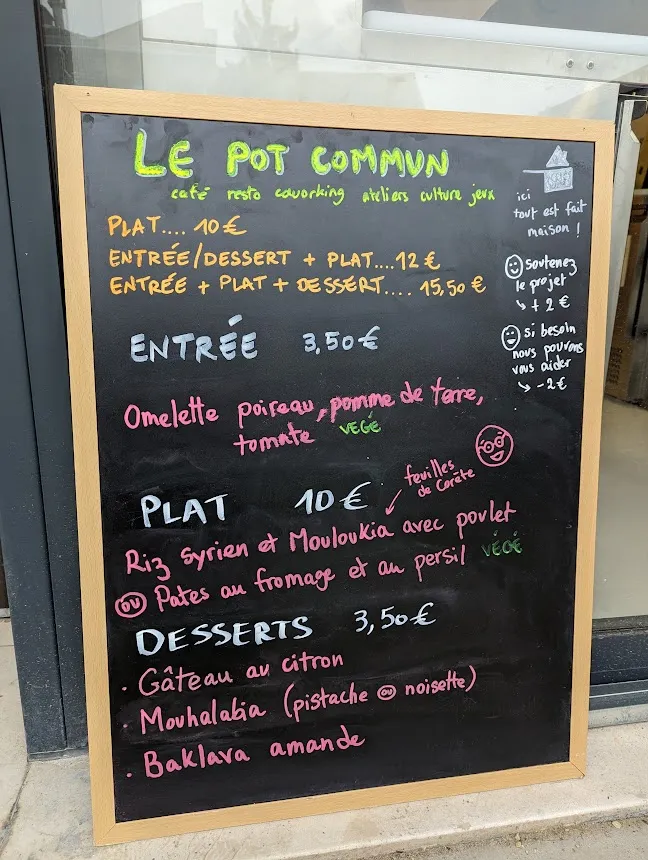 LE POT COMMUN
café resto coworking ateliers culture jeux
PLAT.... 10 €
ENTRÉE/DESSERT + PLAT....12 €
ENTRÉE + PLAT + DESSERT.... 15,50 €
ici
tout est fait
maison !
soutenez
le projet
↳ + 2 €
si besoin
nous pouvons
vous aider
↳ - 2 €
ENTRÉE 3,50 €
Omelette poireau, pomme de terre,
tomate VEGÉ
PLAT 10 €
feuilles
de Corète
Riz syrien et Mouloukia avec poulet
ou Pates au fromage et au persil VÉGÉ
DESSERTS 3,50 €
· Gâteau au citron
· Mouhalabia (pistache ou noisette)
· Baklava amande